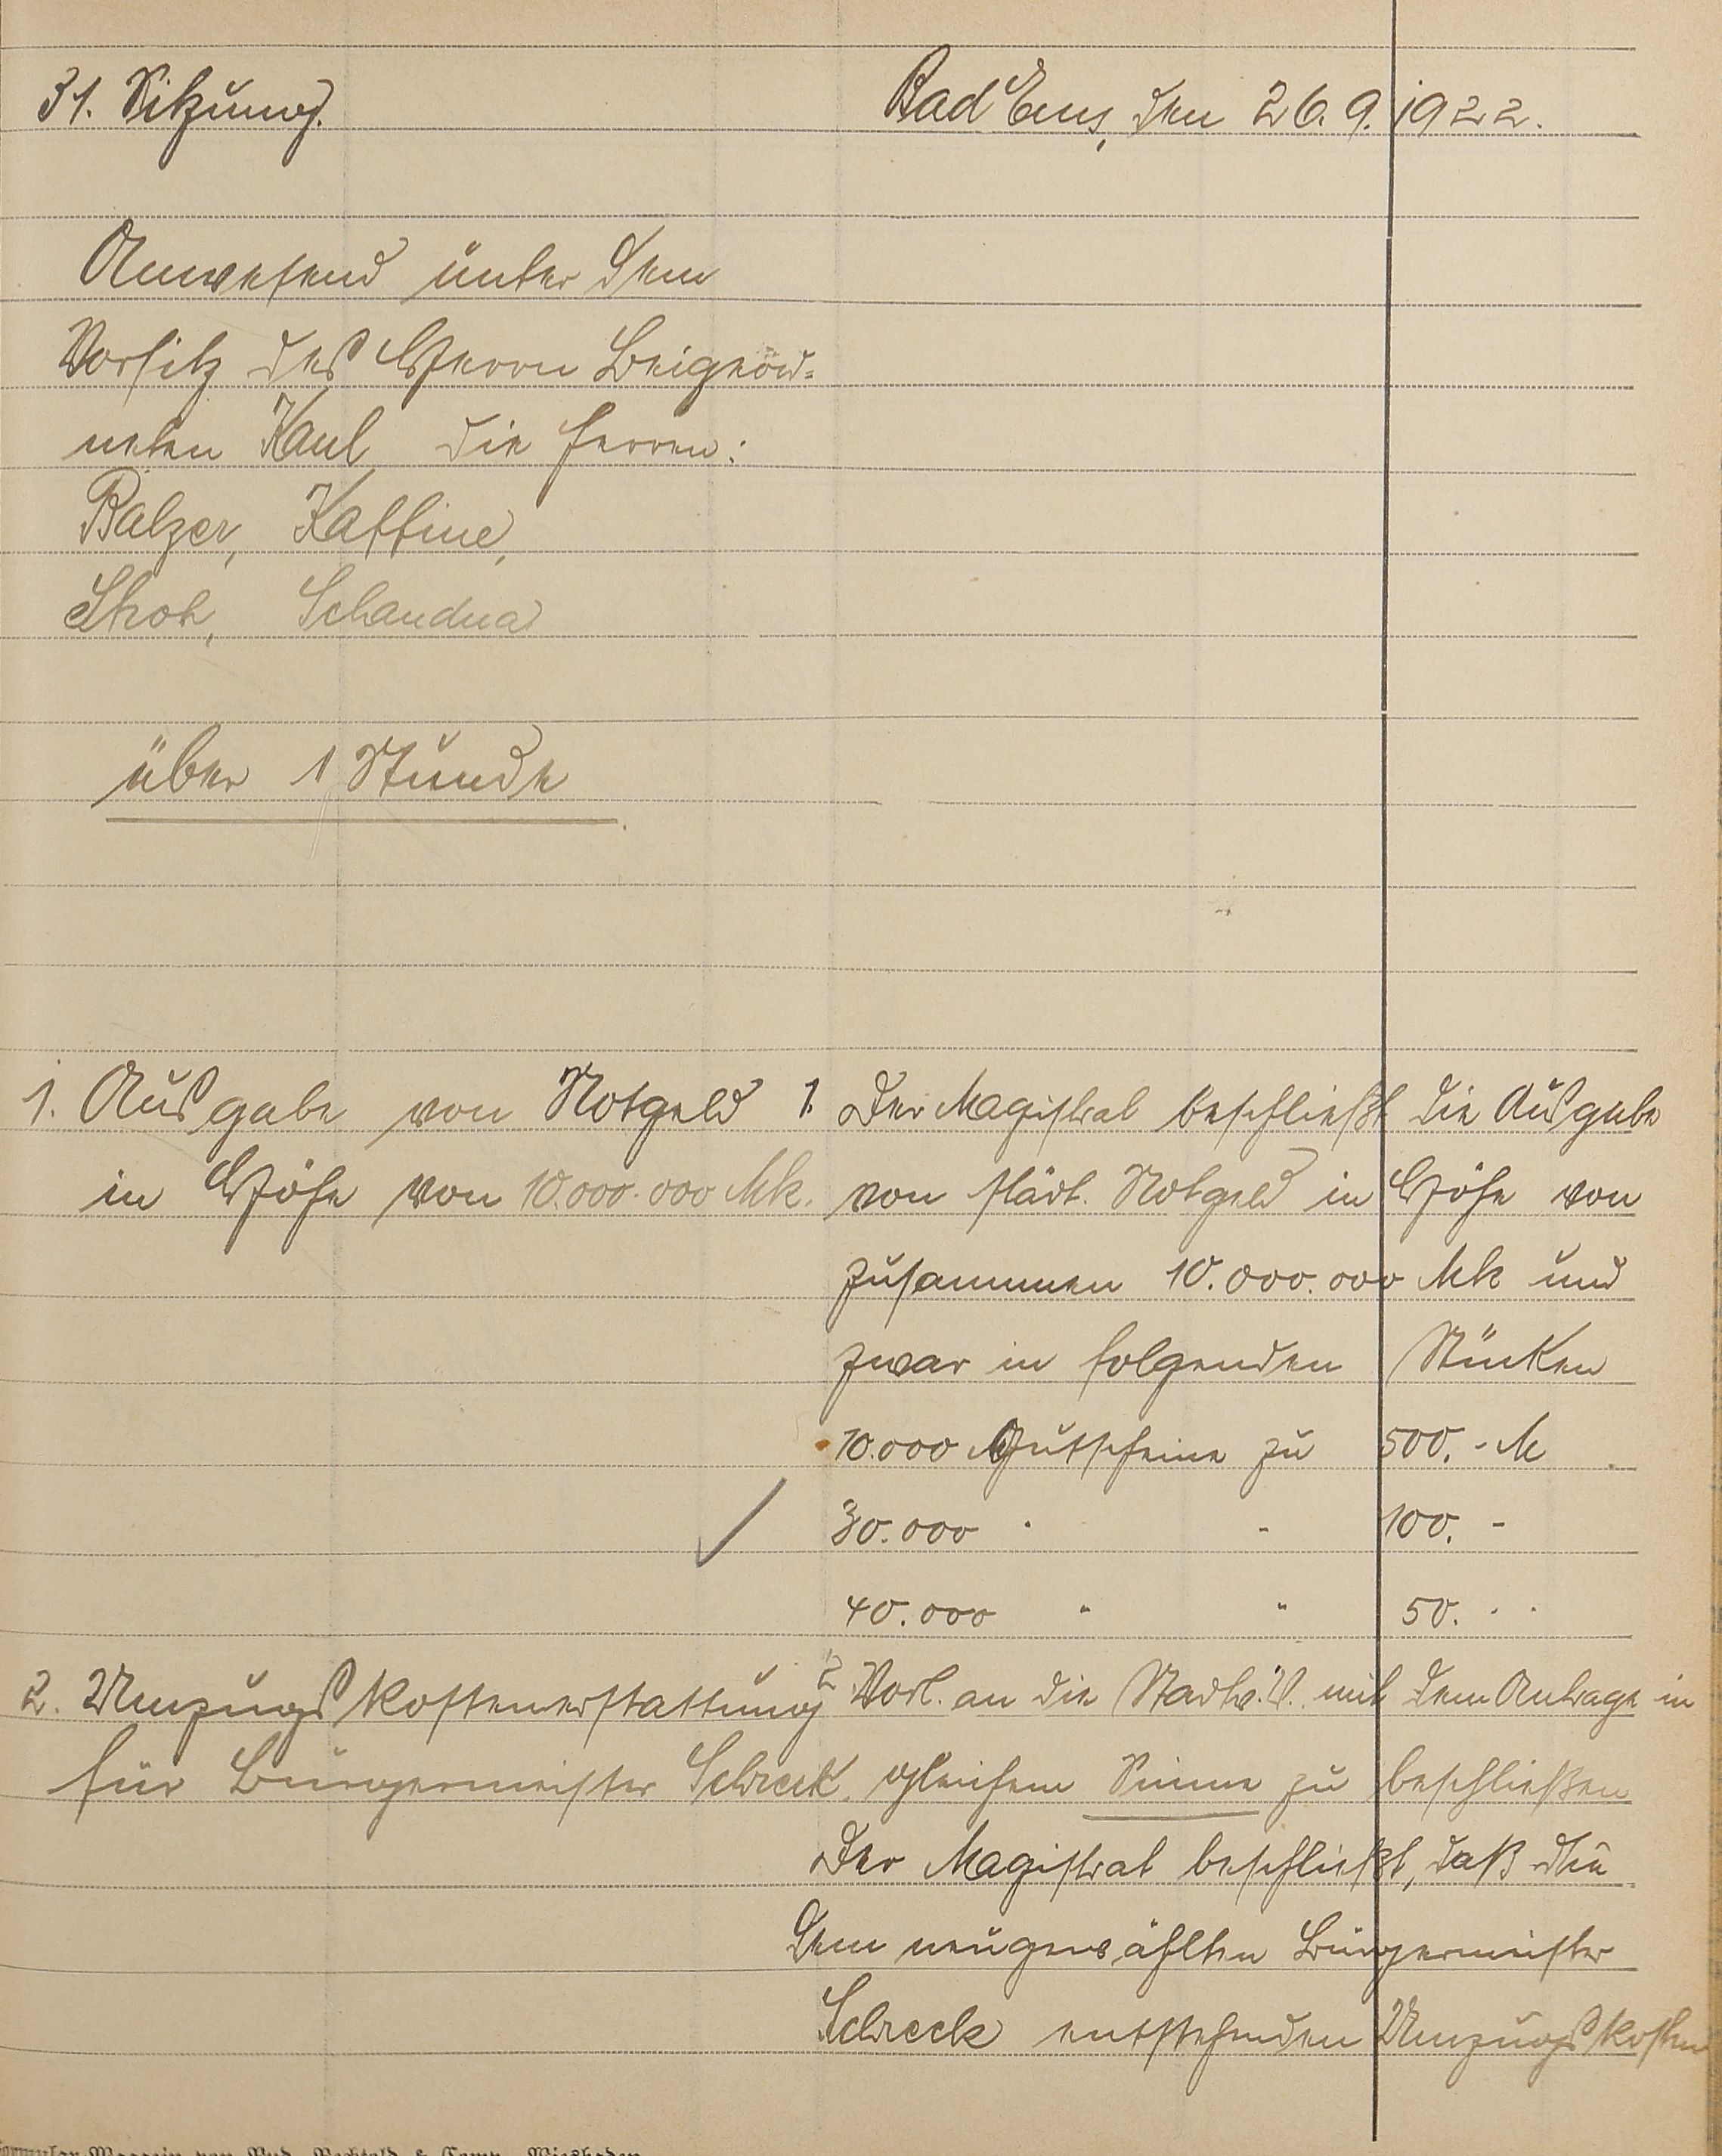 31. Sitzung.
Bad Ems, den 26.9.1922.
Anwesend unter dem
Vorsitz des Herrn Beigeord-
neten Kaul die Herren:
Balzer, Kattine,
Stroh, Schaudua
über 1 Stunde
1. Ausgabe von Notgeld
in Höhe von 10.000.000 Mk.
1. Der Magistrat beschließt die Ausgabe
von städt. Notgeld in Höhe von
zusammen 10.000.000 Mk und
zwar in folgenden Stücken
10.000 Gutscheine zu 500.- M
30.000 " " 100. -
40.000 " " 50. "
2. Umzugskostenerstattung
für Bürgermeister Schreck.
2. Vorl. an die Stadtv.V. mit dem Antrage in
gleichem Sinne zu beschließen
Der Magistrat beschließt, daß die
dem neugewählten Bürgermeister
Schreck entstehenden Umzugskosten
Formular-Magazin von Rud. Bechtold & Comp., Wiesbaden